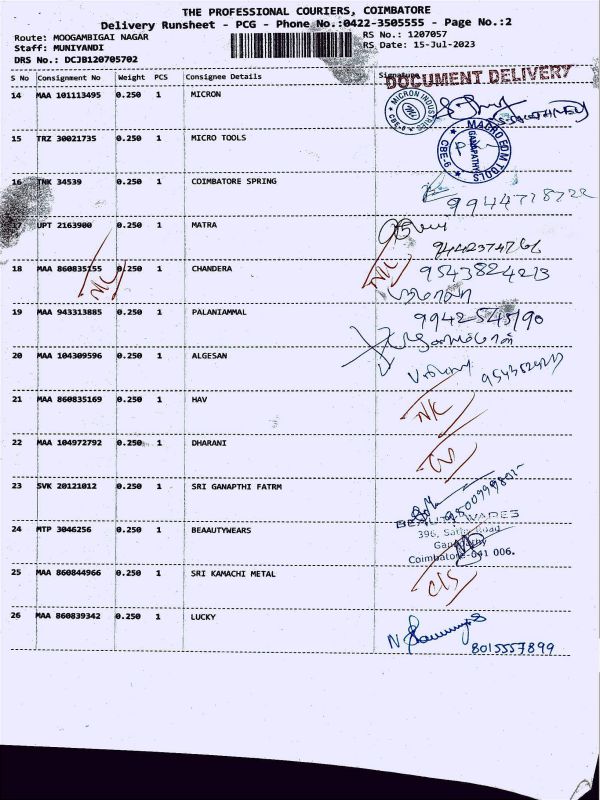 THE PROFESSIONAL COURIERS, COIMBATORE
Delivery Runsheet - PCG - Phone No.:0422-3505555 - Page No.:2
Route: MOOGAMBIGAI NAGAR
RS No.: 1207057
Staff: MUNIYANDI
RS Date: 15-Jul-2023
DRS No.: DCJB120705702
S No Consignment No Weight PCS Consignee Details Signature
DOCUMENT DELIVERY
14 MAA 101113495 0.250 1 MICRON
MICRON INDUSTRIES
CBE-6
15 TRZ 30021735 0.250 1 MICRO TOOLS
MACRO EDM TOOLS
GANAPATHY
CBE-6
16 TNK 34539 0.250 1 COIMBATORE SPRING
17 UPT 2163900 0.250 1 MATRA
18 MAA 860835155 0.250 1 CHANDERA
19 MAA 943313885 0.250 1 PALANIAMMAL
20 MAA 104309596 0.250 1 ALGESAN
21 MAA 860835169 0.250 1 HAV
22 MAA 104972792 0.250 1 DHARANI
23 SVK 20121012 0.250 1 SRI GANAPTHI FATRM
24 MTP 3046256 0.250 1 BEAAUTYWEARS
396, Sathy Road
Ganapathy
Coimbatore-641 006.
25 MAA 860844966 0.250 1 SRI KAMACHI METAL
26 MAA 860839342 0.250 1 LUCKY
8015557899